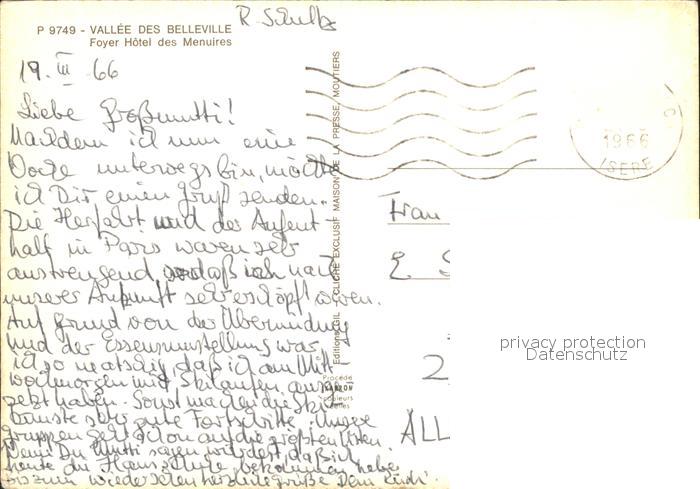 R. Schulz
P 9749 - VALLÉE DES BELLEVILLE
Foyer Hôtel des Menuires
19. III 66
Liebe Großmutti!
Nachdem ich nun eine
Woche unterwegs bin, möchte
ich Dir einen Gruß senden.
Die Herfahrt und der Aufent-
halt in Paris waren sehr
anstrengend sodaß ich nach
unserer Ankunft sehr erschöpft waren.
Auf Grund von der Übermüdung
und der Essensumstellung war
ich so, daß ich am Mitt
wochmorgen mit Skilaufen
setzt haben. Sonst machen die
sehr gute Fortschritte. Unsere
Gruppen geht schon auf die größten Pisten.
Wenn Du Mutti sagen würdest, daß ich
heute die bekommen habe
bis zum Wiedersehen herzliche Grüße Dein
Editions GIL - CLICHÉ EXCLUSIF MAISON DE LA PRESSE, MOUTIERS
Procédé
couleurs
1966
ISERE
Frau
E. S
2
ALL
privacy protection
Datenschutz